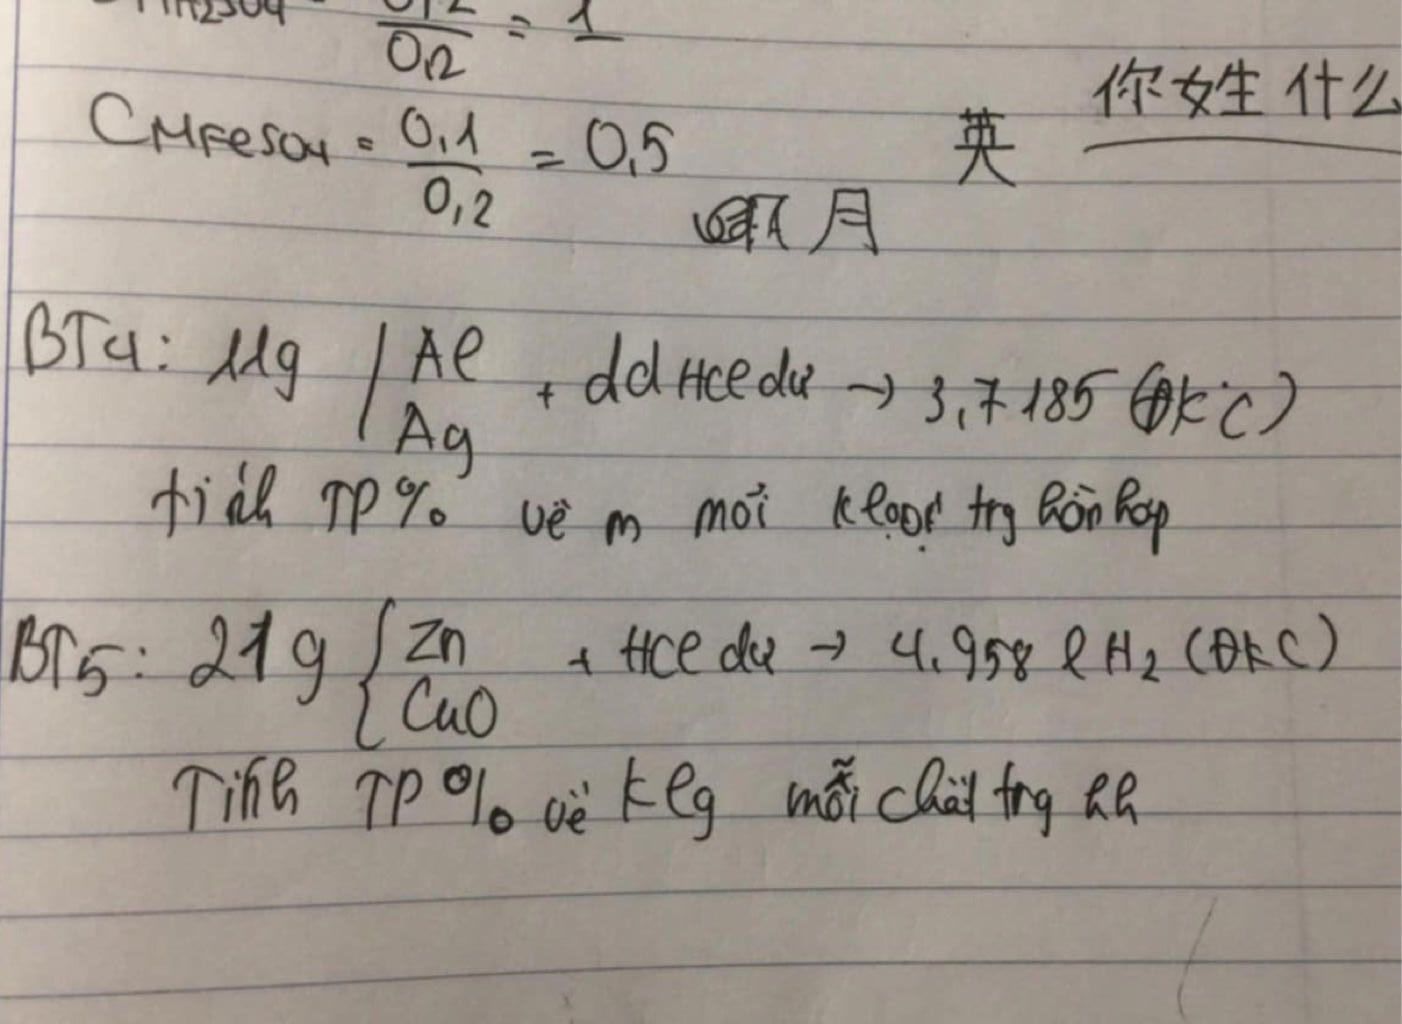 0,2
0,2 = 1
你 女生 什么
CMFeSO4 = 0,1 / 0,2 = 0,5
英
月
BT4: 11g Al Ag + dd HCl dư → 3,7185 (ĐKC)
tính TP% về m mỗi kloại trg hỗn hợp
BT5: 21g { Zn CuO + HCl dư → 4.958 l H2 (ĐKC)
Tính TP% về klg mỗi chất trg hh